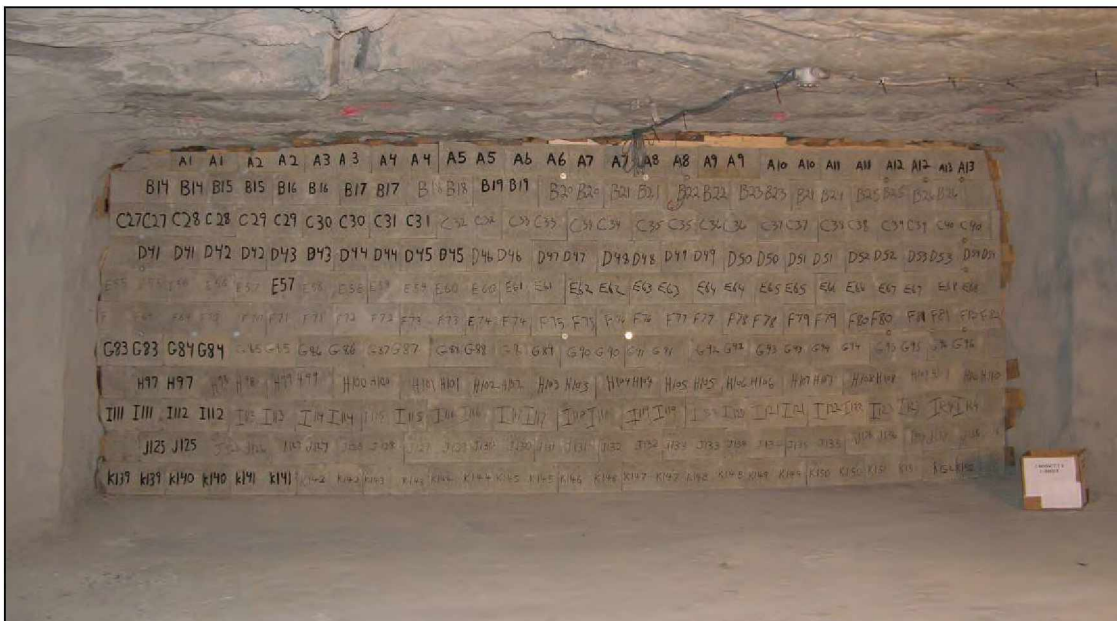 A1 A1 A2 A2 A3 A3 A4 A4 A5 A5 A6 A6 A7 A7 A8 A8 A9 A9 A10 A10 A11 A11 A12 A12 A13 A13
B14 B14 B15 B15 B16 B16 B17 B17 B18 B18 B19 B19 B20 B20 B21 B21 B22 B22 B23 B23 B24 B24 B25 B25 B26 B26
C27 C27 C28 C28 C29 C29 C30 C30 C31 C31 C32 C32 C33 C33 C34 C34 C35 C35 C36 C36 C37 C37 C38 C38 C39 C39 C40 C40
D41 D41 D42 D42 D43 B43 D44 D44 D45 B45 D46 D46 D47 D47 D48 D48 D49 D49 D50 D50 D51 D51 D52 D52 D53 D53 D54 D54
E55 E55 E56 E57 E57 E58 E58 E59 E59 E60 E60 E61 E61 E62 E62 E63 E63 E64 E64 E65 E65 E66 E66 E67 E67 E68 E68
F70 F71 F71 F72 F72 F73 F73 F74 F74 F75 F75 F76 F76 F77 F77 F78 F78 F79 F79 F80 F80 F81 F81 F82 F82
G83 G83 G84 G84 G85 G85 G86 G86 G87 G87 G88 G88 G89 G90 G90 G91 G91 G92 G92 G93 G93 G94 G94 G95 G95 G96 G96
H97 H97 H98 H98 H99 H99 H100 H100 H101 H101 H102 H102 H103 H103 H104 H104 H105 H105 H106 H106 H107 H107 H108 H108 H110
I111 I111 I112 I112 I113 I113 I114 I114 I115 I115 I117 I117 I118 I118 I119 I119 I120 I121 I121 I122 I122 I123 I123 I124 I124
J125 J125 J126 J127 J127 J128 J128 J129 J130 J130 J131 J131 J132 J132 J133 J133 J134
K139 K139 K140 K140 K141 K141 K142 K142 K143 K143 K144 K144 K145 K145 K146 K146 K147 K147 K148 K148 K149 K149 K150 K150 K151 K151 K152 K152